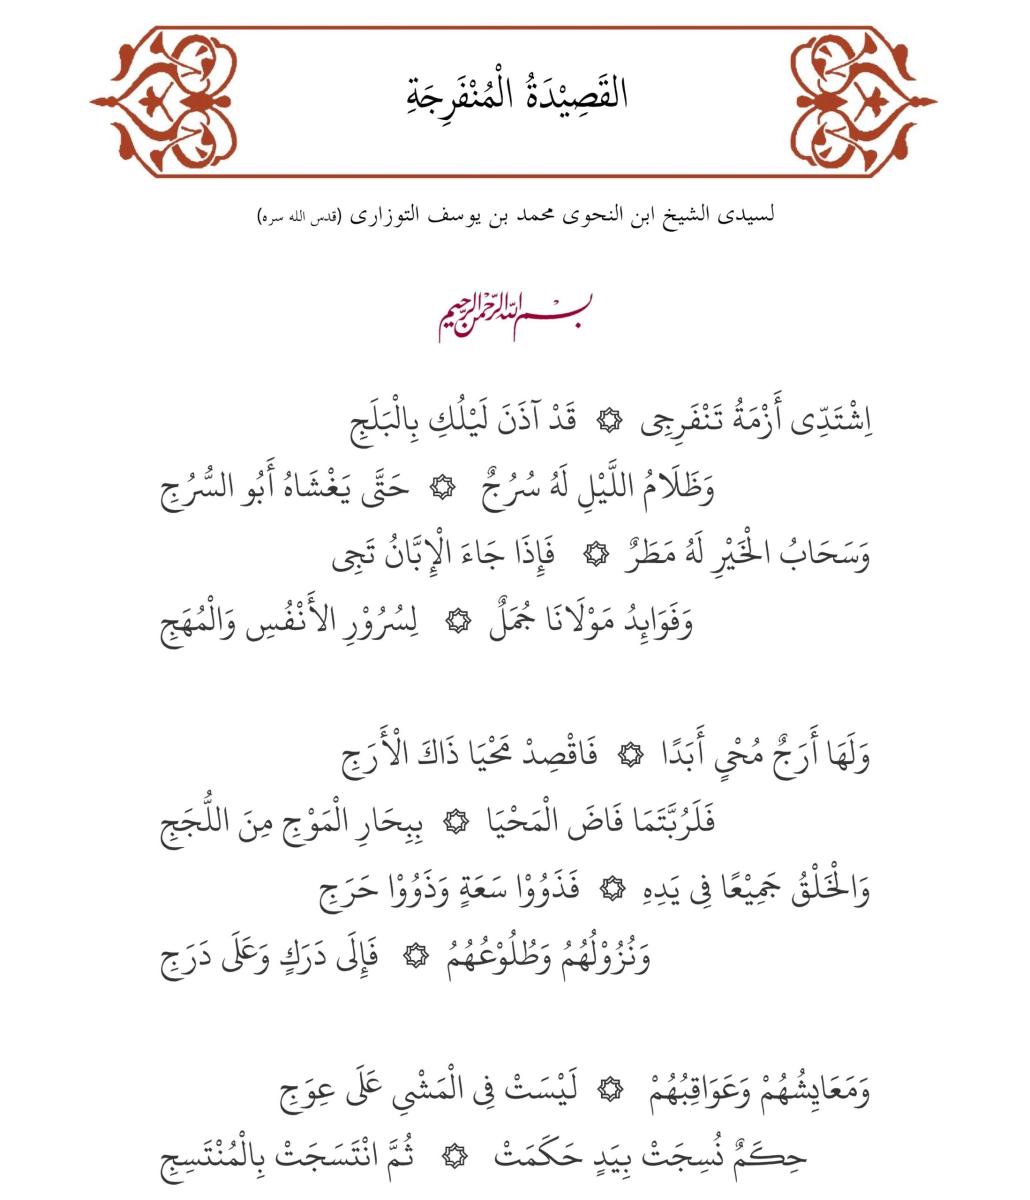 القَصِيْدَةُ الْمُنْفَرِجَةِ
لسيدى الشيخ ابن النحوى محمد بن يوسف التوزارى (قدس الله سره)
بسم الله الرحمن الرحيم
اِشْتَدِّى أَزْمَةُ تَنْفَرِجِى ۞ قَدْ آذَنَ لَيْلُكِ بِالْبَلَجِ
وَظَلَامُ اللَّيْلِ لَهُ سُرُجٌ ۞ حَتَّى يَغْشَاهُ أَبُو السُّرُجِ
وَسَحَابُ الْخَيْرِ لَهُ مَطَرٌ ۞ فَإِذَا جَاءَ الْإِبَّانُ تَجِى
وَفَوَايِدُ مَوْلَانَا جُمَلٌ ۞ لِسُرُوْرِ الأَنْفُسِ وَالْمُهَجِ
وَلَهَا أَرَجٌ مُحْيٍ أَبَدًا ۞ فَاقْصِدْ مَحْيَا ذَاكَ الْأَرَجِ
فَلَرُبَّتَمَا فَاضَ الْمَحْيَا ۞ بِبِحَارِ الْمَوْجِ مِنَ اللُّجَجِ
وَالْخَلْقُ جَمِيْعًا فِى يَدِهِ ۞ فَذَوُوْا سَعَةٍ وَذَوُوْا حَرَجِ
وَنُزُوْلُهُمُ وَطُلُوْعُهُمُ ۞ فَإِلَى دَرَكٍ وَعَلَى دَرَجِ
وَمَعَايِشُهُمْ وَعَوَاقِبُهُمْ ۞ لَيْسَتْ فِى الْمَشْىِ عَلَى عِوَجِ
حِكَمٌ نُسِجَتْ بِيَدٍ حَكَمَتْ ۞ ثُمَّ انْتَسَجَتْ بِالْمُنْتَسِجِ